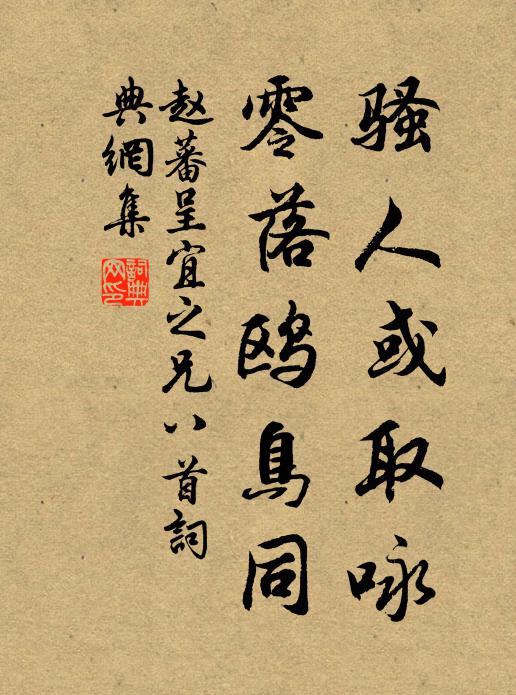 骚人或取咏
零落鸥鳥同
赵蕃呈宜之兄八首詞
典網集
詞典网印